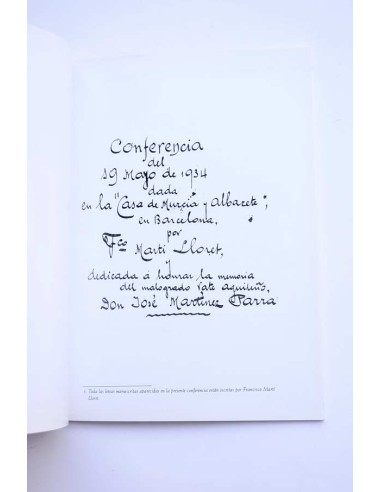 Conferencia
del
19 Mayo de 1934
dada
en la "Casa de Murcia y Albacete";
en Barcelona,
por
Fco Martí Lloret,
y
dedicada á honrar la memoria
del malogrado vate aguileño,
Don José Martinez Parra
Toda las letras manuscritas aparecidas en la presente conferencia están escritas por Francisco Martí
Lloret.